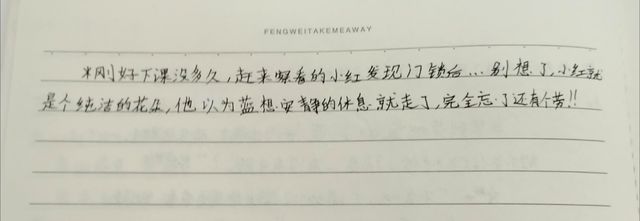 FENGWEITAKEMEAWAY
*刚好下课没多久，赶来察看的小红发现门锁后…别想了，小红就
是个纯洁的花朵，他以为蓝想安静的休息就走了，完全忘了还有个苦!!